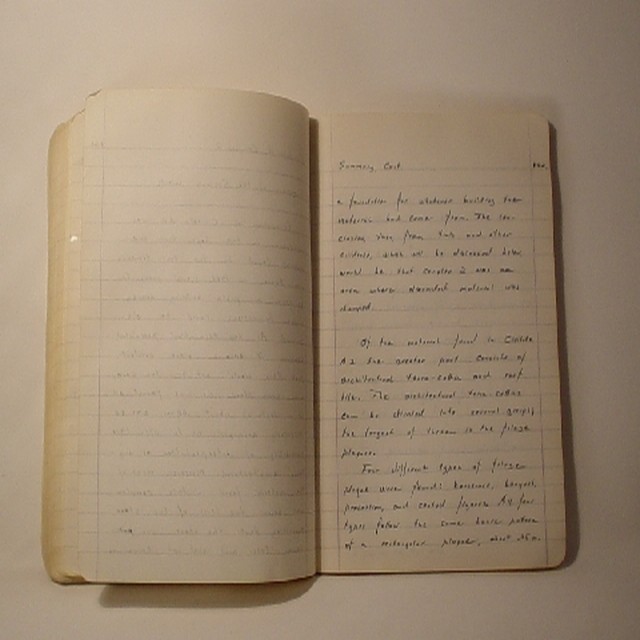 Summary Cont.
a foundation for whatever building the
material had come from. The con-
clusion then, from this and other
evidence, which will be discussed below,
would be that Cordate 2 was an
area where discarded material was
dumped.
Of the material found in
A2 the greater part consists of
architectural terra-cotta and roof
tiles. The architectural terra-cottas
can be divided into several groups,
the largest of them is the frieze
plaques.
Four different types of frieze
plaque were found: horserace, banquet,
procession, and seated figures. All four
types follow the same basic pattern
of a rectangular plaque, about